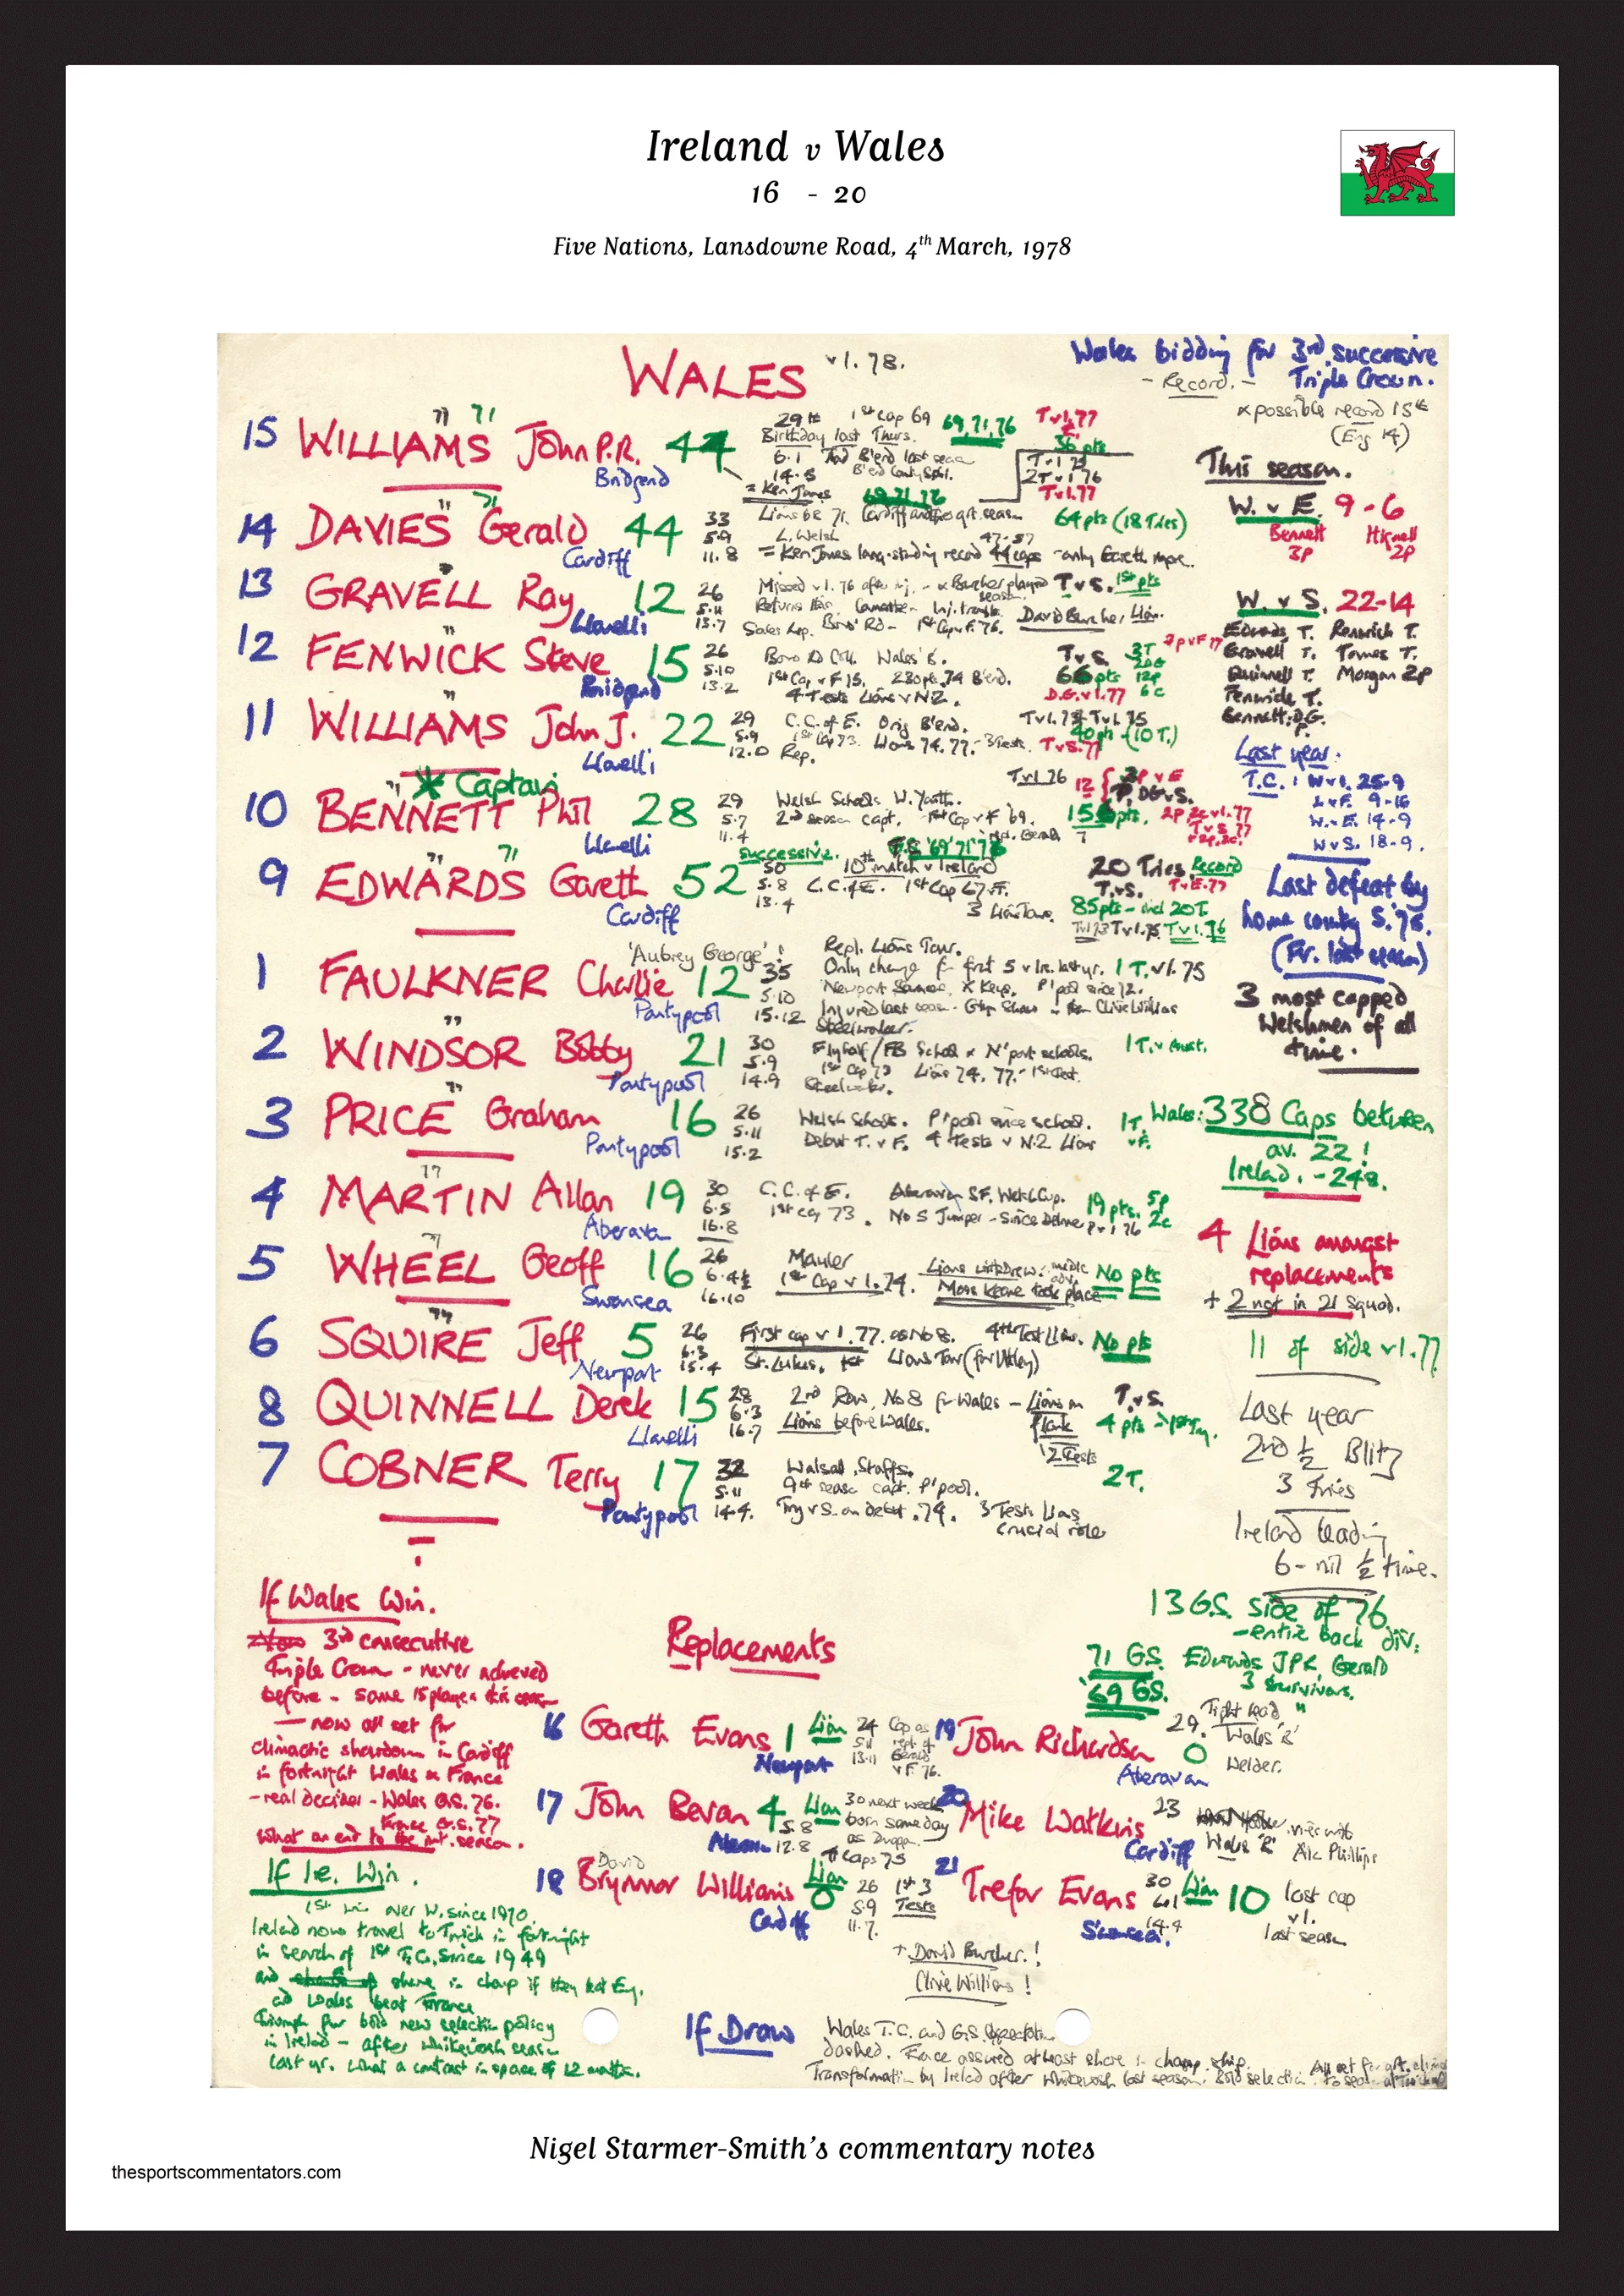 Ireland v Wales
16 - 20
Five Nations, Lansdowne Road, 4th March, 1978
WALES v I. 78.
Wales bidding for 3rd successive
Triple Crown.
- Record. -
x possible record 15th
(Eng 14)
15 WILLIAMS John P.R. 44
Bridgend
29th 1st Cap 69 69, 71, 76
Birthday last Thurs.
6.1
14.5
= Ken Jones
T v I. 77
36 pts
T v I 75
2T v I 76
T v I. 77
14 DAVIES Gerald 44
Cardiff
69, 71, 76
33 Lions 68 71.
5.9 L. Welsh 47-57
11.8 = Ken Jones long-standing record 44 caps - only Gareth more.
64 pts (18 Tries)
13 GRAVELL Ray 12
Llanelli
26 Missed v I. 76 after inj. - x Burcher played season.
5.11
13.7 Sales Rep. 1st Cap v F. 76. David Burcher, Lion.
T v S. 1st pts
12 FENWICK Steve 15
Bridgend
26 Boro Rd Coll. Wales 'B'.
5.10 1st Cap v F 75. 230 pts 74 B'end.
13.2 4 Tests Lions v N.Z.
T v S. 3T
66 pts 12p
D.G. v I. 77 6c
2p v F 77
11 WILLIAMS John J. 22
Llanelli
29 C.C. of E. Orig B'end.
5.9 1st Cap 73. Lions 74, 77. - 3 Tests.
12.0 Rep.
T v I. 74 T v I. 75
40 pts - (10 T.)
T v S. 77
* Captain
10 BENNETT Phil 28
Llanelli
29 Welsh Schools W. Youth.
5.7 2nd season capt. 1st Cap v F '69.
11.4
T v I 76
12 { 3P v E
P, DG v S.
2P 2c v I. 77
T v S 77
9 EDWARDS Gareth 52
Cardiff
successive. G.S. '69 '71 '76
50 10th match v Ireland
5.8 C.C. of E. 1st Cap 67 v F.
13.4 3 Lions Tours.
20 Tries Record
T. v S. T v E. 77
85 pts - incl 20T
T v I 73 T v I. 75 T v I. 76
1 FAULKNER Charlie 12
'Aubrey George'!
Pontypool
35
5.10
15.12
Repl. Lions Tour.
Only change fr front 5 v Ire. last yr. 1 T. v I. 75
P'pool since 72.
Injured last season
Steelworker.
2 WINDSOR Bobby 21
Pontypool
30 Fly half / FB School x N'port schools.
5.9 1st Cap 73 Lions 74, 77. - 1st Test.
14.9 Steelworker.
1 T. v Aust.
3 PRICE Graham 16
Pontypool
26 Welsh Schools. P'pool since school.
5.11 Debut T. v F. 4 Tests v N.Z Lions
15.2
1T. v F.
4 MARTIN Allan 19
Aberavon
30 C.C. of E. Aberavon SF. Welsh Cup.
6.5 1st Cap 73. No 5 Jumper - Since Delme
16.8
19 pts. 5p 2c
P v I 76
5 WHEEL Geoff 16
Swansea
26 Mauler
6.4½ 1st Cap v I. 74.
16.10
Lions withdrew: medic adv.
Moss Keane took place
No pts
6 SQUIRE Jeff 5
Newport
26 First cap v I. 77. as No 8. 4th Test Lions.
6.3
15.4 St. Lukes. 1st Lions Tour (for Uttley)
No pts
8 QUINNELL Derek 15
Llanelli
28 2nd Row, No 8 for Wales - Lions on Flank
6.3 Lions before Wales.
16.7 2 Tests
T. v S.
4 pts - 1st Try.
7 COBNER Terry 17
Pontypool
32 Walsall, Staffs.
5.11 9th season capt. P'pool.
14.4. Try v S. on debut. 74. 3 Tests Lions
crucial role
2 T.
This season.
W. v E. 9 - 6
Bennett 3p Hignell 2p
W. v S. 22-14
Edwards T. Renwick T.
Gravell T. Tomes T.
Quinnell T. Morgan 2p
Fenwick T.
Bennett: D.G.
P.
Last year:
T.C.: W v I. 25-9
W v F. 9-16
W. v E. 14-9
W v S. 18-9.
Last defeat by
home country S. '75.
(Fr. last season)
3 most capped
Welshmen of all
time.
Wales: 338 Caps between
av. 22!
Ireland. - 248.
4 Lions amongst
replacements
+ 2 not in 21 squad.
11 of side v I. 77.
Last year
2nd ½ Blitz
3 Tries
Ireland leading
6 - nil ½ time.
13 G.S. side of 76
- entire back div.
71 GS. Edwards JPR, Gerald
3 survivors.
69 GS. "
If Wales Win.
3rd consecutive
Triple Crown - never achieved
before - same 15 players this season
- now all set for
climactic showdown in Cardiff
in fortnight Wales x France
- real decider - Wales G.S. 76.
France G.S. 77
What an end to the int. season.
Replacements
16 Gareth Evans 1 Lion
Newport
24 Cap as
5.11 repl. of
13.11 Gerald
v F. 76.
17 John Bevan 4 Lion
5.8
12.8
30 next week
born same day
as Duggan
4 Caps 75
18 David Brynmor Williams 0 Lion
Cardiff
26 1st 3
5.9 Tests
11.7.
19 John Richardson 0
Aberavon
29. Tight head
Wales 'B'
Welder.
20 Mike Watkins
Cardiff
23
Wales 'B' Alc Phillips
21 Trefor Evans 10 Lion
Swansea.
30
6.1
14.4
last cap
v I.
last season
+ David Burcher.!
Clive Williams!
If Ire. Win.
1st win over W. since 1970
Ireland now travel to Twick in fortnight
in search of 1st T.C. since 1949
and share in champ if they beat Eng.
and Wales beat France
Triumph for bold new selection policy
in Ireland - after whitewash season
last yr. What a contrast in space of 12 months.
If Draw
Wales T.C. and G.S. expectations
dashed. France assured at least share in champ.ship.
Transformation by Ireland after whitewash last season. Bold selection
Nigel Starmer-Smith's commentary notes
thesportscommentators.com